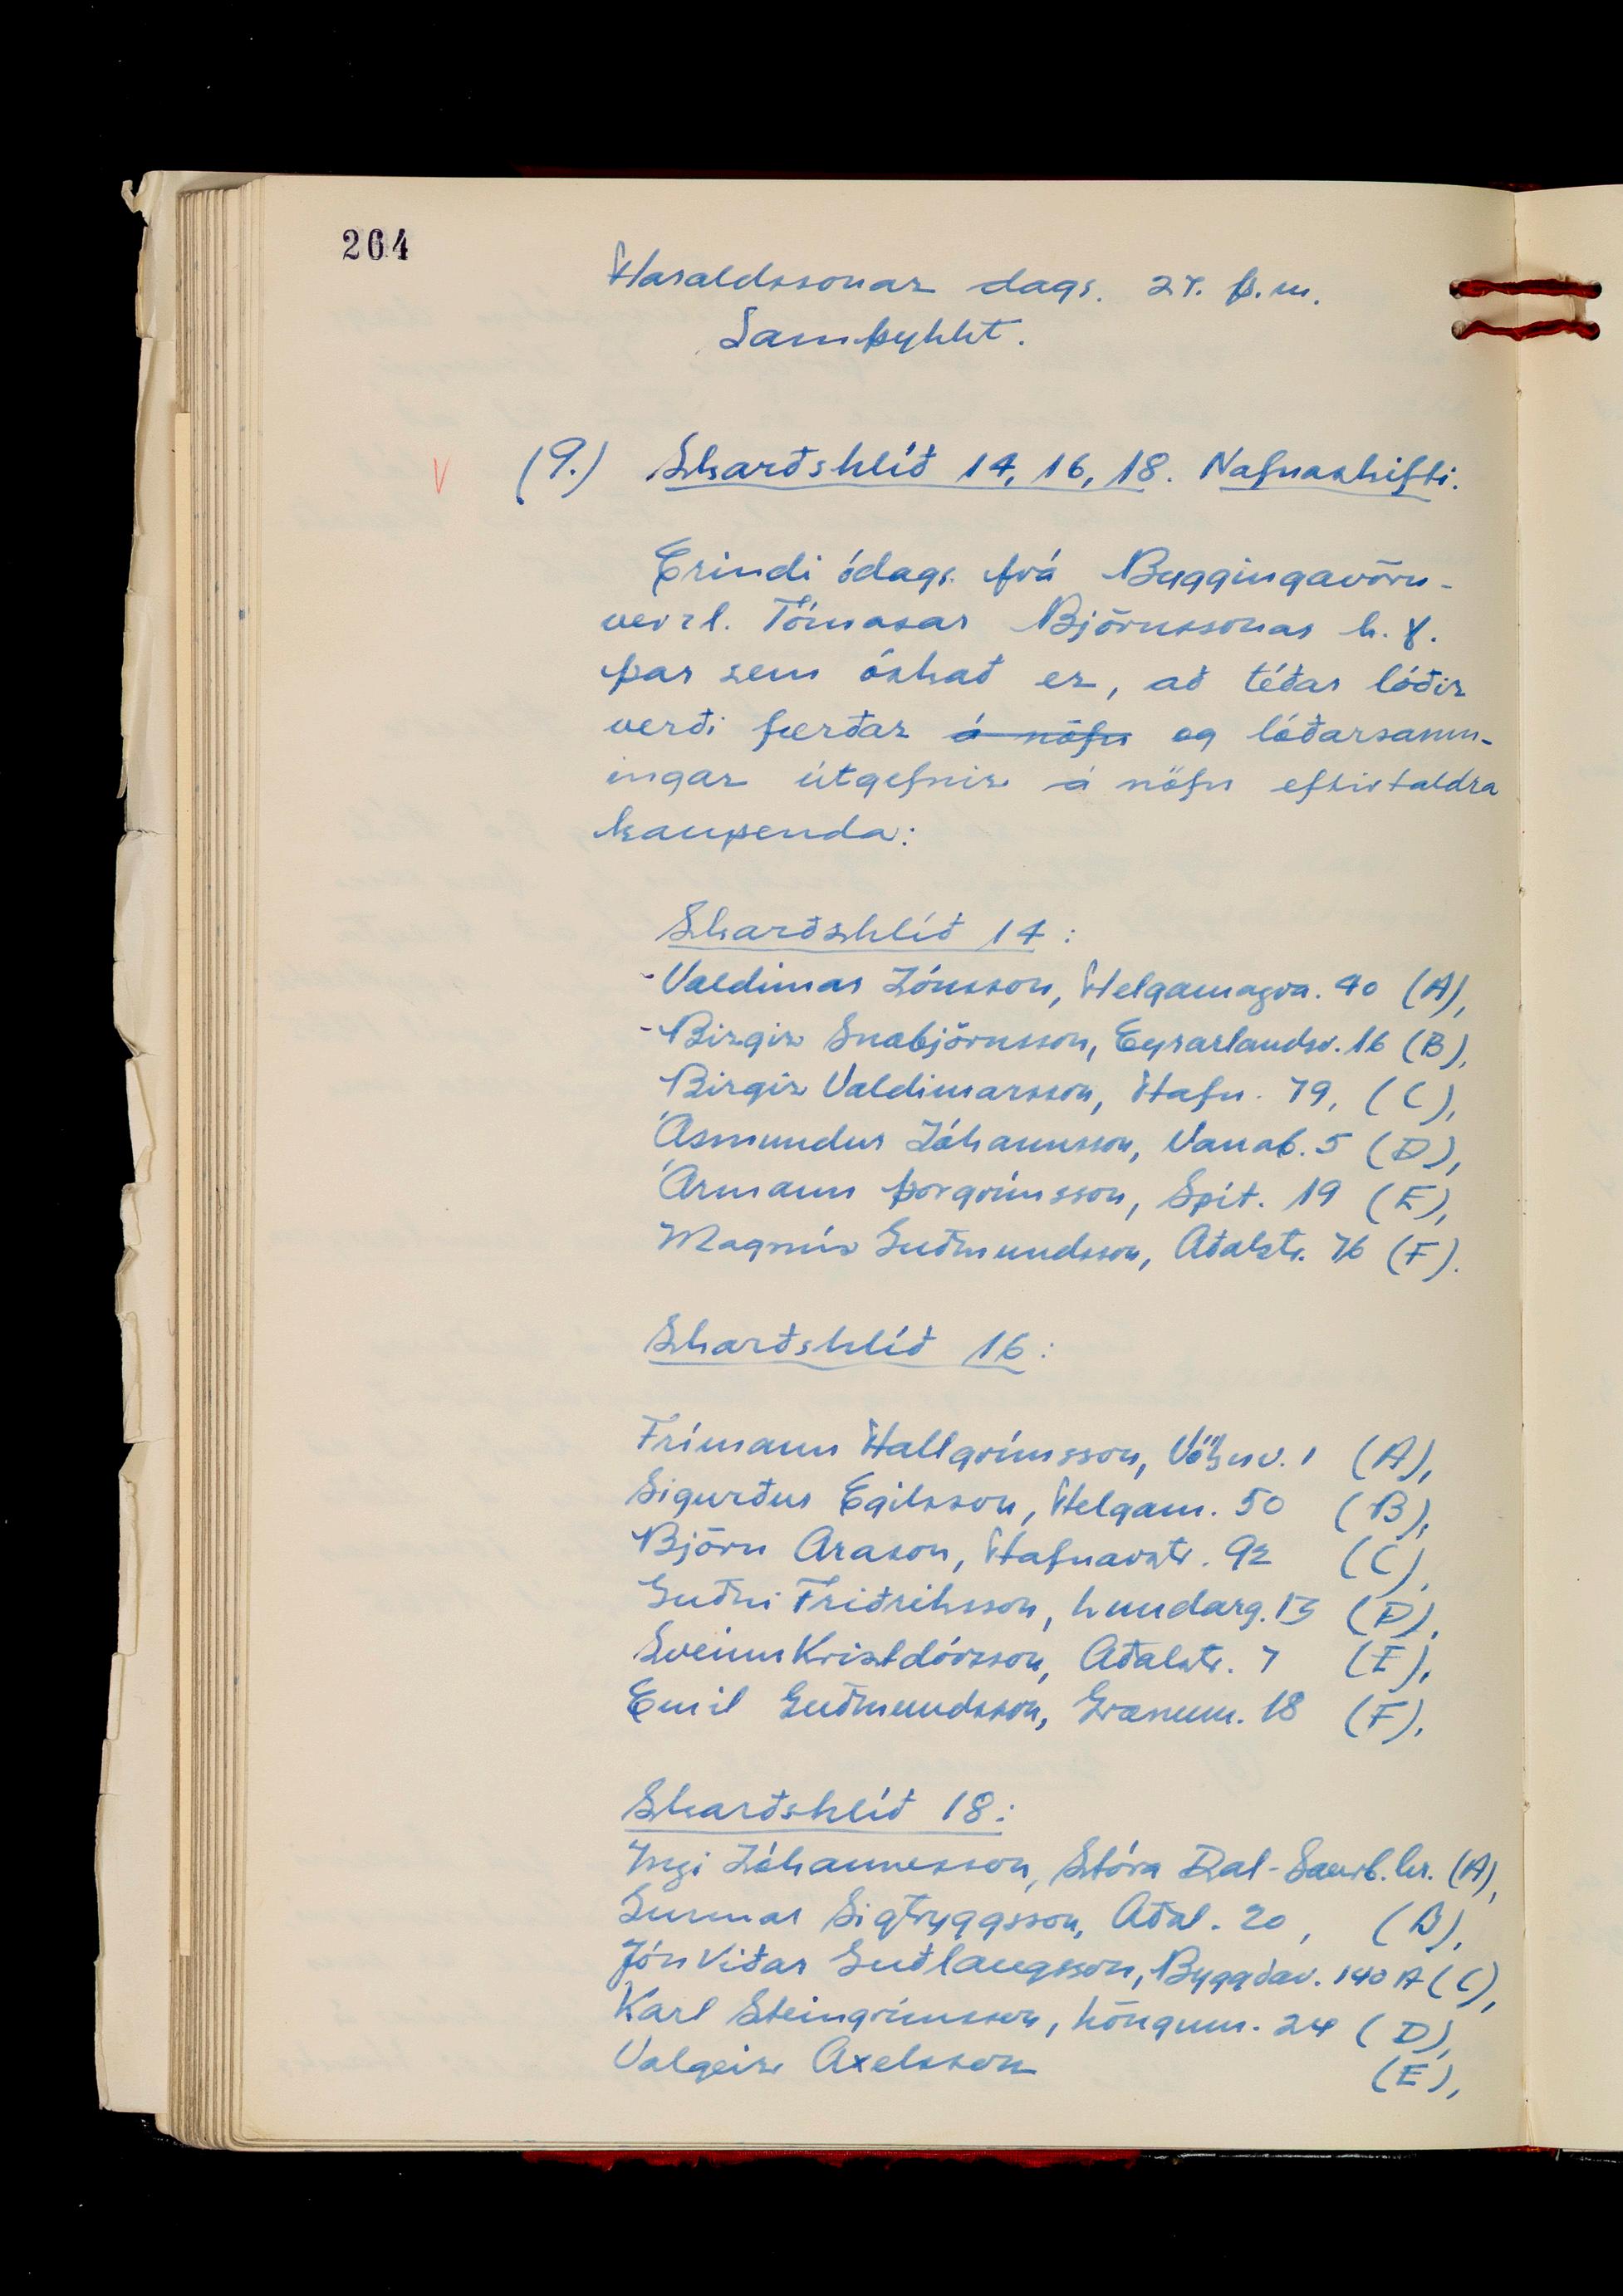 264
Haraldssonar dags. 27. þ.m.
Samþykkt.
V (9.) Skarðshlíð 14, 16, 18. Nafnaskifti.
Erindi ódags. frá Byggingavöru-
verzl. Tómasar Björnssonar h.f.
þar sem óskað er, að téðar lóðir
verði færðar á nöfn og lóðarsamn-
ingar útgefnir á nöfn eftirtaldra
kaupenda:
Skarðshlíð 14:
- Valdimar Jónsson, Helgamagra. 40 (A),
- Birgir Snæbjörnsson, Eyrarlandsv. 16 (B),
Birgir Valdimarsson, Hafn. 79, (C),
Ásmundur Jóhannsson, Vanab. 5 (D),
Ármann Þorgrímsson, Spít. 19 (E),
Magnús Guðmundsson, Aðalstr. 76 (F).
Skarðshlíð 16:
Frímann Hallgrímsson, 1 (A),
Sigurður Egilsson, Helgam. 50 (B),
Björn Arason, Hafnarstr. 92 (C),
Guðni Friðriksson, Lundarg. 13 (D),
Sveinn Kristdórsson, Aðalstr. 7 (E),
Emil Guðmundsson, Grænum. 18 (F),
Skarðshlíð 18:
Ingi Jóhannesson, Stóra Dal-Saurb.hr. (A),
Gunnar Sigtryggsson, Aðal. 20, (B),
Jón Viðar Guðlaugsson, Byggðav. 140 A (C),
Karl Steingrímsson, Löngum. 24 (D),
Valgeir Axelsson (E),